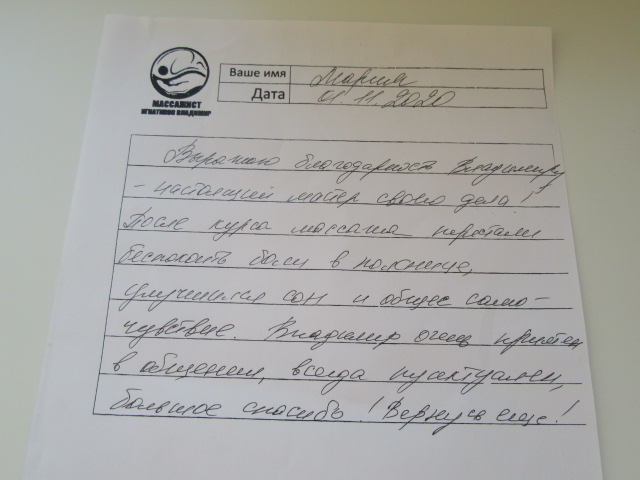 Ваше имя Мария
Дата 01.11.2020
МАССАЖИСТ
ИГНАТИКОВ ВЛАДИМИР
Выражаю благодарность Владимиру
- настоящий мастер своего дела!
После курса массажа перестали
беспокоить боли в пояснице,
улучшился сон и общее само-
чувствие. Владимир очень приятен
в общении, всегда пунктуален,
большое спасибо! Вернусь еще!